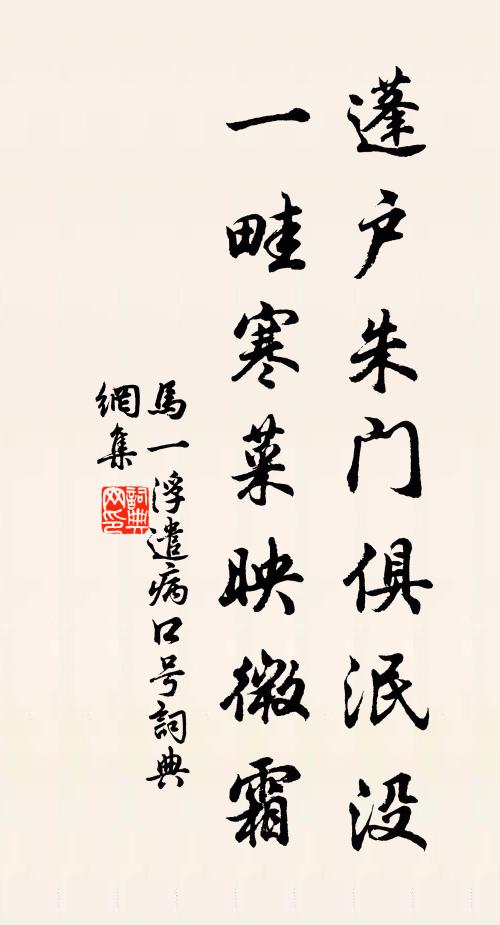 蓬户朱门俱泯没
一畦寒菜映微霜
馬一浮遣病口号詞典
網集
詞典网印